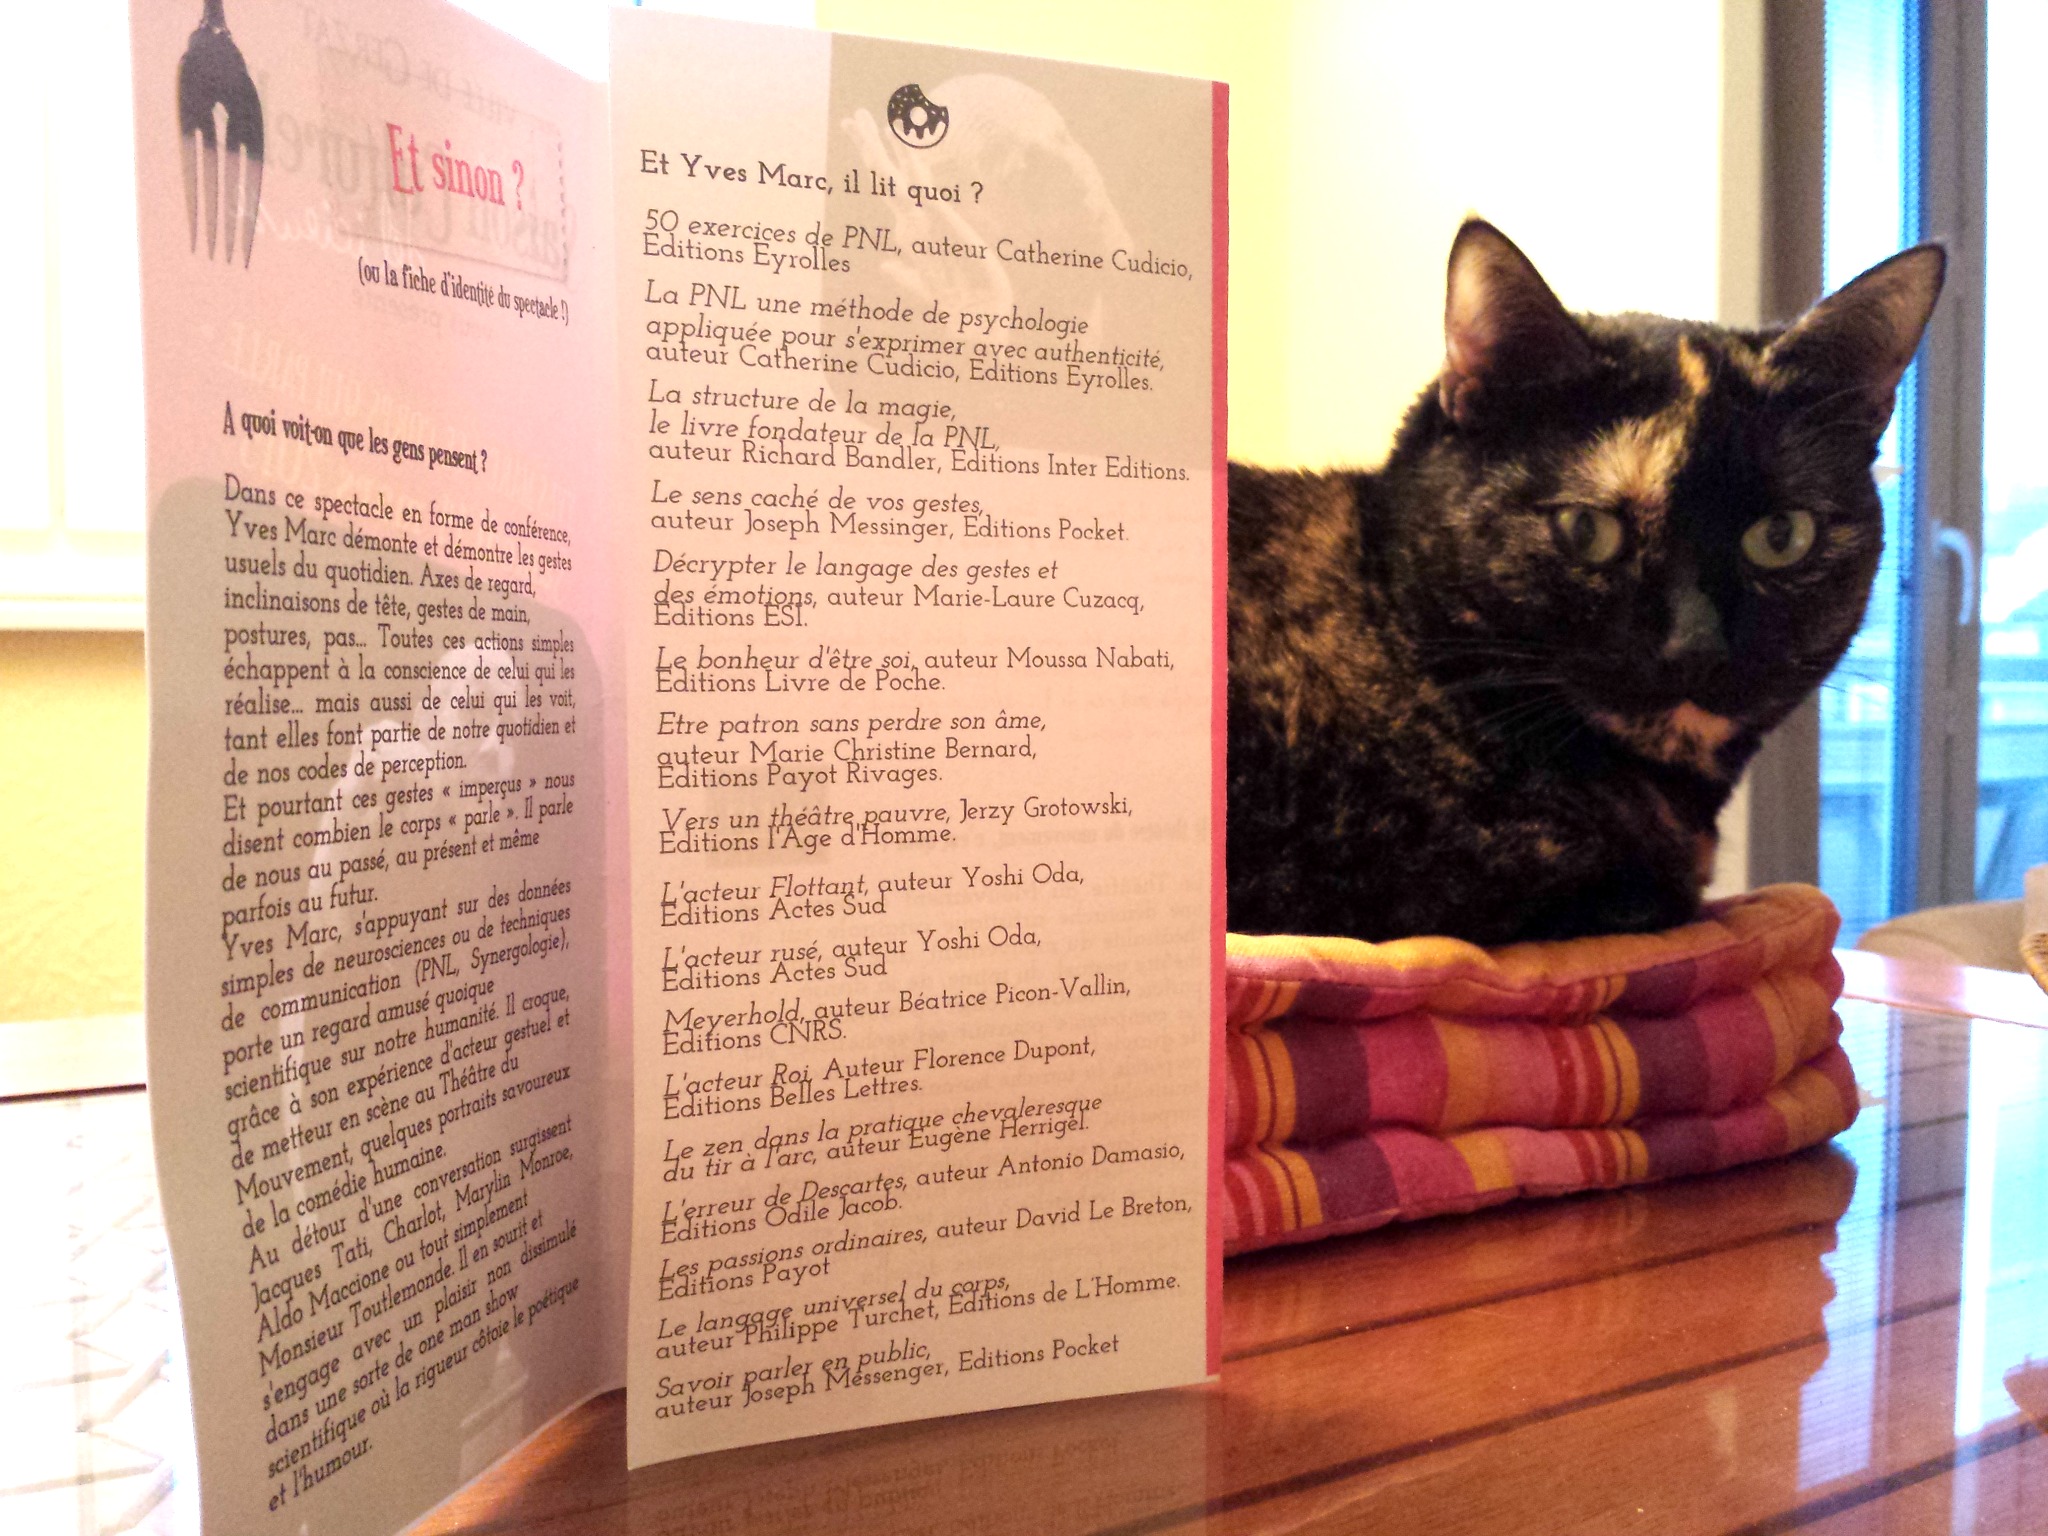 Et sinon ?
(ou la fiche d'identité du spectacle !)
A quoi voit-on que les gens pensent ?
Dans ce spectacle en forme de conférence,
Yves Marc démonte et démontre les gestes
usuels du quotidien. Axes de regard,
inclinaisons de tête, gestes de main,
postures, pas... Toutes ces actions simples
échappent à la conscience de celui qui les
réalise... mais aussi de celui qui les voit,
tant elles font partie de notre quotidien et
de nos codes de perception.
Et pourtant ces gestes « imperçus » nous
disent combien le corps « parle ». Il parle
de nous au passé, au présent et même
parfois au futur.
Yves Marc, s'appuyant sur des données
simples de neurosciences ou de techniques
de communication (PNL, Synergologie),
porte un regard amusé quoique
scientifique sur notre humanité. Il croque,
grâce à son expérience d'acteur gestuel et
de metteur en scène au Théâtre du
Mouvement, quelques portraits savoureux
de la comédie humaine.
Au détour d'une conversation surgissent
Jacques Tati, Charlot, Marylin Monroe,
Aldo Maccione ou tout simplement
Monsieur Toutlemonde. Il en sourit et
s'engage avec un plaisir non dissimulé
dans une sorte de one man show
scientifique où la rigueur côtoie le poétique
et l'humour.
Et Yves Marc, il lit quoi ?
50 exercices de PNL, auteur Catherine Cudicio,
Editions Eyrolles
La PNL une méthode de psychologie
appliquée pour s'exprimer avec authenticité,
auteur Catherine Cudicio, Editions Eyrolles.
La structure de la magie,
le livre fondateur de la PNL,
auteur Richard Bandler, Editions Inter Editions.
Le sens caché de vos gestes,
auteur Joseph Messinger, Editions Pocket.
Décrypter le langage des gestes et
des émotions, auteur Marie-Laure Cuzacq,
Editions ESI.
Le bonheur d'être soi, auteur Moussa Nabati,
Editions Livre de Poche.
Etre patron sans perdre son âme,
auteur Marie Christine Bernard,
Editions Payot Rivages.
Vers un théâtre pauvre, Jerzy Grotowski,
Editions l'Age d'Homme.
L'acteur Flottant, auteur Yoshi Oda,
Editions Actes Sud
L'acteur rusé, auteur Yoshi Oda,
Editions Actes Sud
Meyerhold, auteur Béatrice Picon-Vallin,
Editions CNRS.
L'acteur Roi, Auteur Florence Dupont,
Editions Belles Lettres.
Le zen dans la pratique chevaleresque
du tir à l'arc, auteur Eugène Herrigel.
L'erreur de Descartes, auteur Antonio Damasio,
Editions Odile Jacob.
Les passions ordinaires, auteur David Le Breton,
Editions Payot
Le langage universel du corps,
auteur Philippe Turchet, Editions de L'Homme.
Savoir parler en public,
auteur Joseph Messenger, Editions Pocket